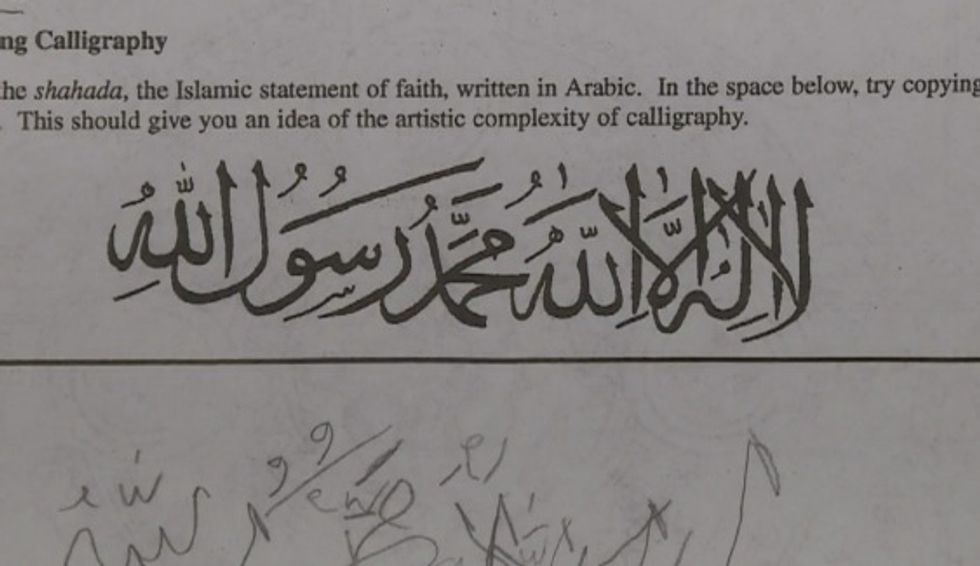 ng Calligraphy
he shahada, the Islamic statement of faith, written in Arabic. In the space below, try copying
. This should give you an idea of the artistic complexity of calligraphy.
لَا إِلٰهَ إِلَّا اللهُ مُحَمَّدٌ رَسُولُ اللهِ